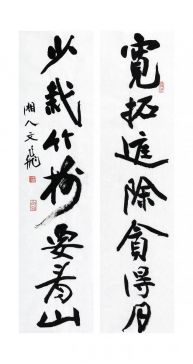 寬拓庭除貪得月
少栽竹樹要看山
湘人文